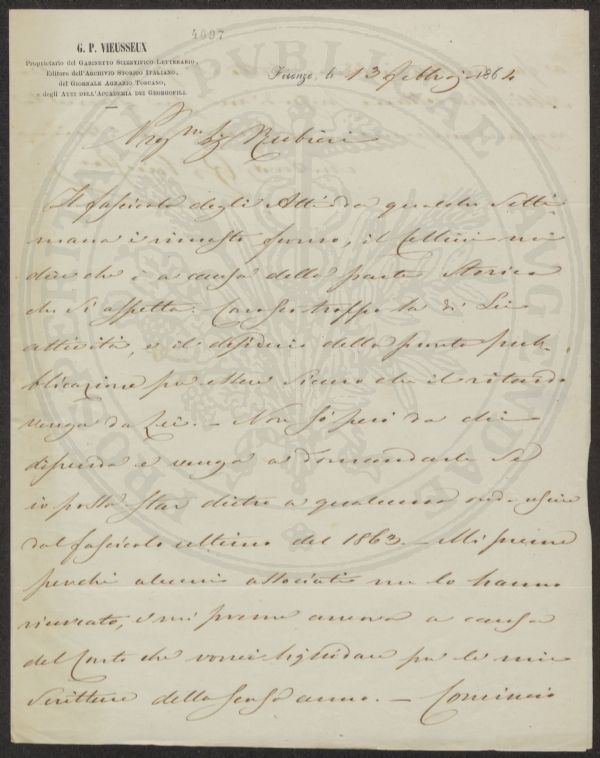 4097
G. P. VIEUSSEUX
Proprietario del GABINETTO SCIENTIFICO-LETTERARIO,
Editore dell'ARCHIVIO STORICO ITALIANO,
del GIORNALE AGRARIO TOSCANO,
e degli ATTI DELL'ACCADEMIA DEI GEORGOFILI.
Firenze, li 13 febbrajo 1864
Preg.mo Sig. Rubieri
Il fascicolo degli Atti da qualche setti
mana è rimasto fermo, il Cellini mi
dice che è a causa della parte Storica
che si aspetta. Conosco troppo la di Lei
attività, e il desiderio della pronta pub-
blicazione per essere sicuro che il ritardo
venga da Lei. – Non so però da chi
dipenda e vengo a domandarle se
io possa star dietro a qualcuno onde esca
dal fascicolo ultimo del 1863. – Mi preme
perché alcuni associati me lo hanno
ricercato, e mi preme ancora a causa
del Conto che vorrei liquidare per le mie
Scritture dello scorso anno. – Comincio
PROSPERITATI PUBLICAE AUGENDAE